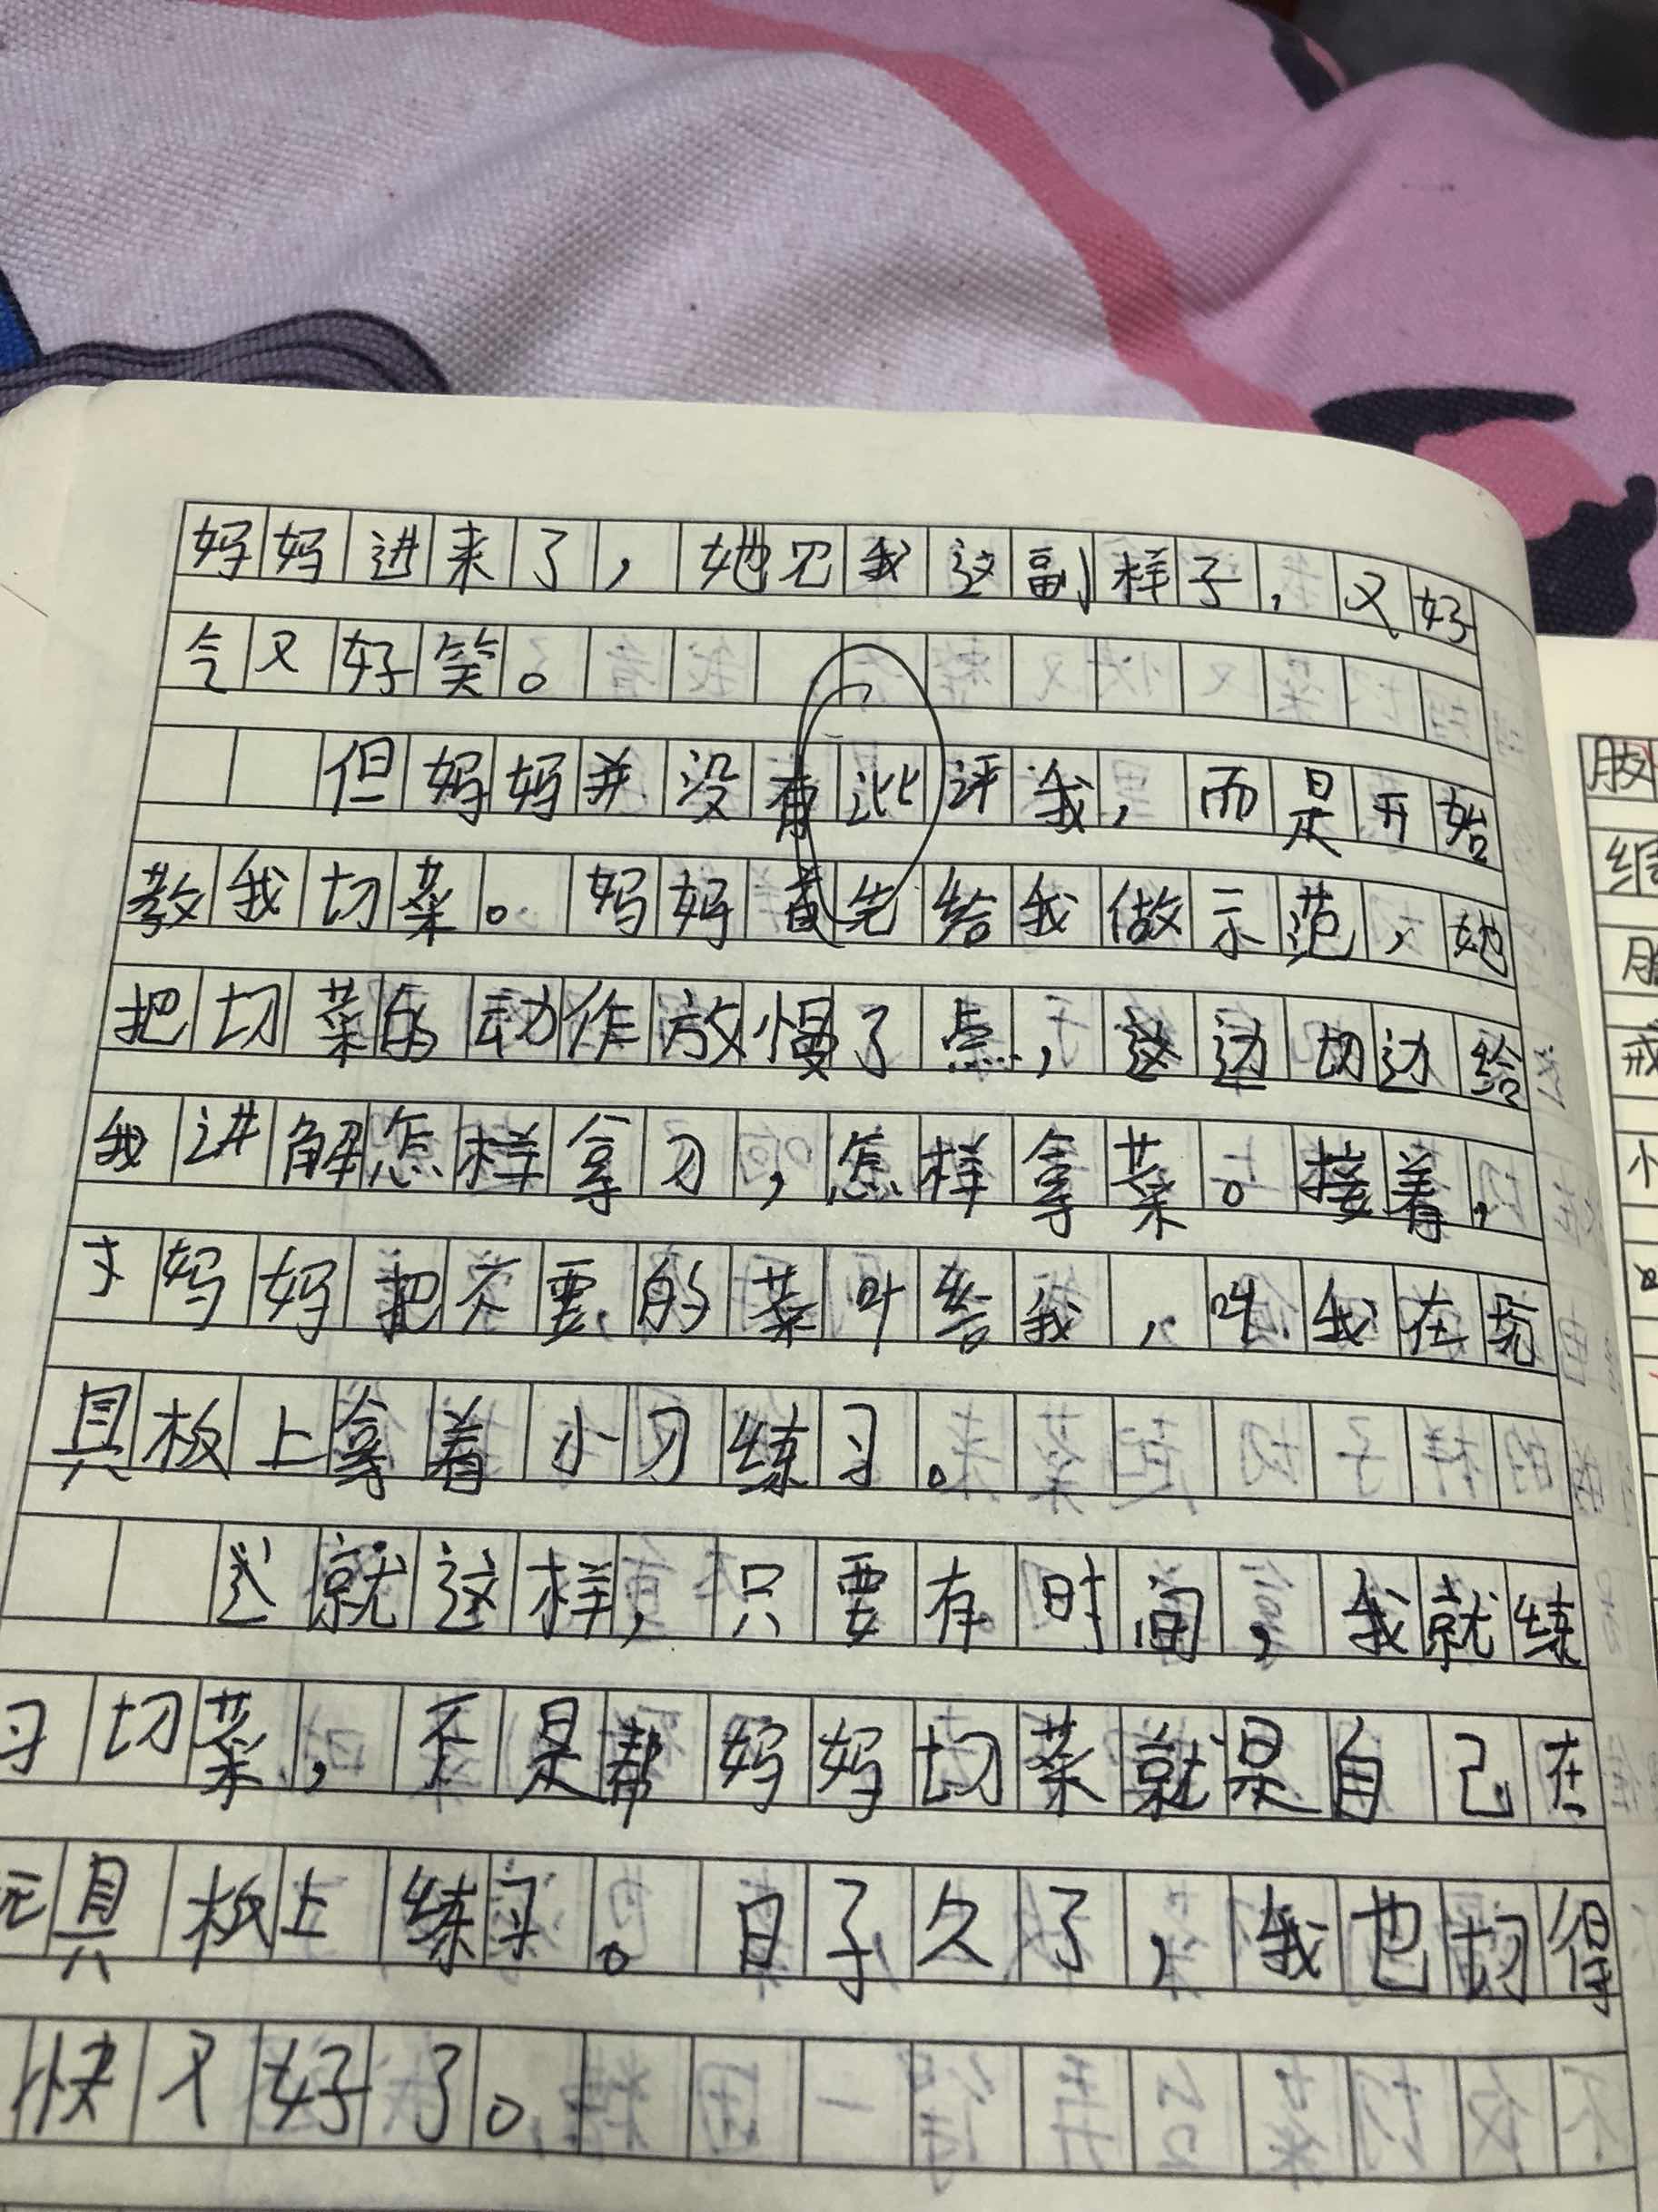 妈妈进来了，她见我这副样子，又好
气又好笑。
但妈妈并没有批评我，而是开始
教我切菜。妈妈首先给我做示范，她
把切菜的动作放慢了点，这边切边给
我进解怎样拿刀，怎样拿菜。接着，
才妈妈把不要的菜叶给我，叫我在玩
具板上拿着小刀练习。
就这样，只要有时间，我就练
习切菜，不是帮妈妈切菜就是自己在
玩具板上练习。日子久了，我也切得
快又好了。
胶
绸
戒
小